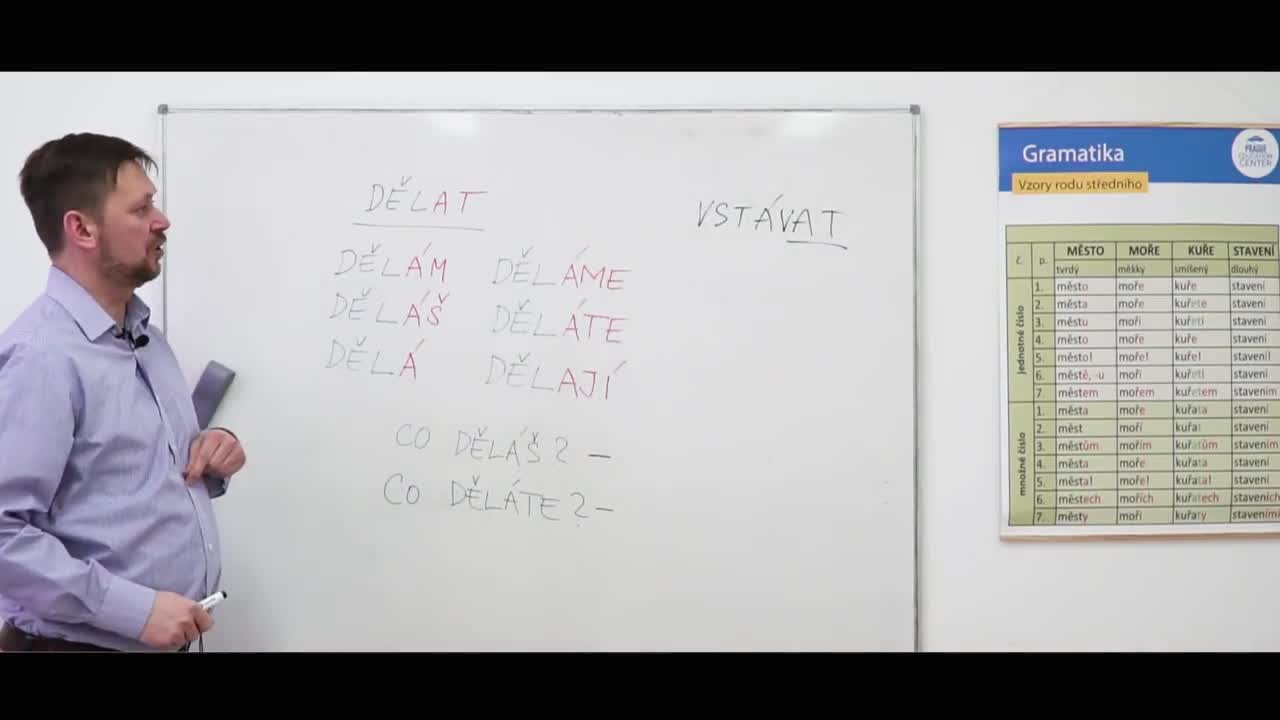 DĚLAT
DĚLÁM DĚLÁME
DĚLÁŠ DĚLÁTE
DĚLÁ DĚLAJÍ
CO DĚLÁŠ? –
CO DĚLÁTE? –
VSTÁVAT
Gramatika
PRAGUE
EDUCATION
CENTER
Vzory rodu středního
č. p. MĚSTO MOŘE KUŘE STAVENÍ
tvrdý měkký smíšený dlouhý
jednotné číslo
1. město moře kuře stavení
2. města moře kuřete stavení
3. městu moři kuřeti stavení
4. město moře kuře stavení
5. město! moře! kuře! stavení!
6. městě, -u moři kuřeti stavení
7. městem mořem kuřetem stavením
množné číslo
1. města moře kuřata stavení
2. měst moří kuřat stavení
3. městům mořím kuřatům stavením
4. města moře kuřata stavení
5. města! moře! kuřata! stavení!
6. městech mořích kuřatech staveních
7. městy moři kuřaty staveními